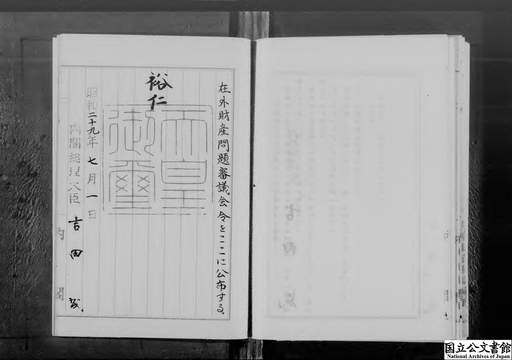 在外財産問題審議会令をここに公布する。
裕仁
天皇御璽
昭和二十九年七月一日
内閣総理大臣 吉田茂
内閣
国立公文書館
National Archives of Japan